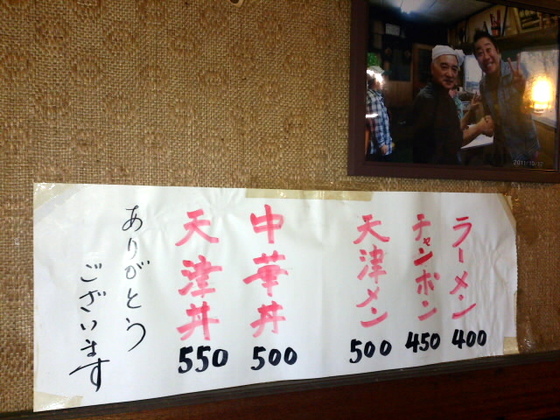 ラーメン
400
チャンポン
450
天津メン
500
中華丼
500
天津丼
550
ありがとう
ございます